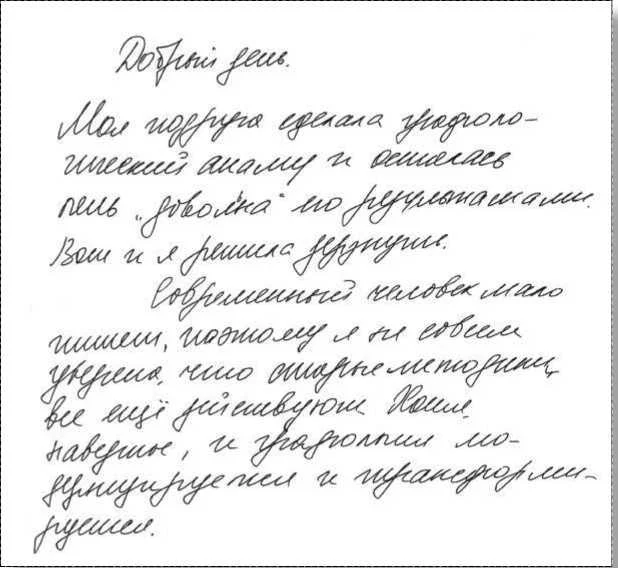 Добрый день.
Моя подруга сделала графоло-
гический анализ и осталась
очень „довольна" его результатами.
Вот и я решила дерзнуть.
Современный человек мало
пишет, поэтому я не совсем
уверена, что старые методики
все ещё действуют. Хотя,
наверное, и графология мо-
дернизируется и трансформи-
руется.